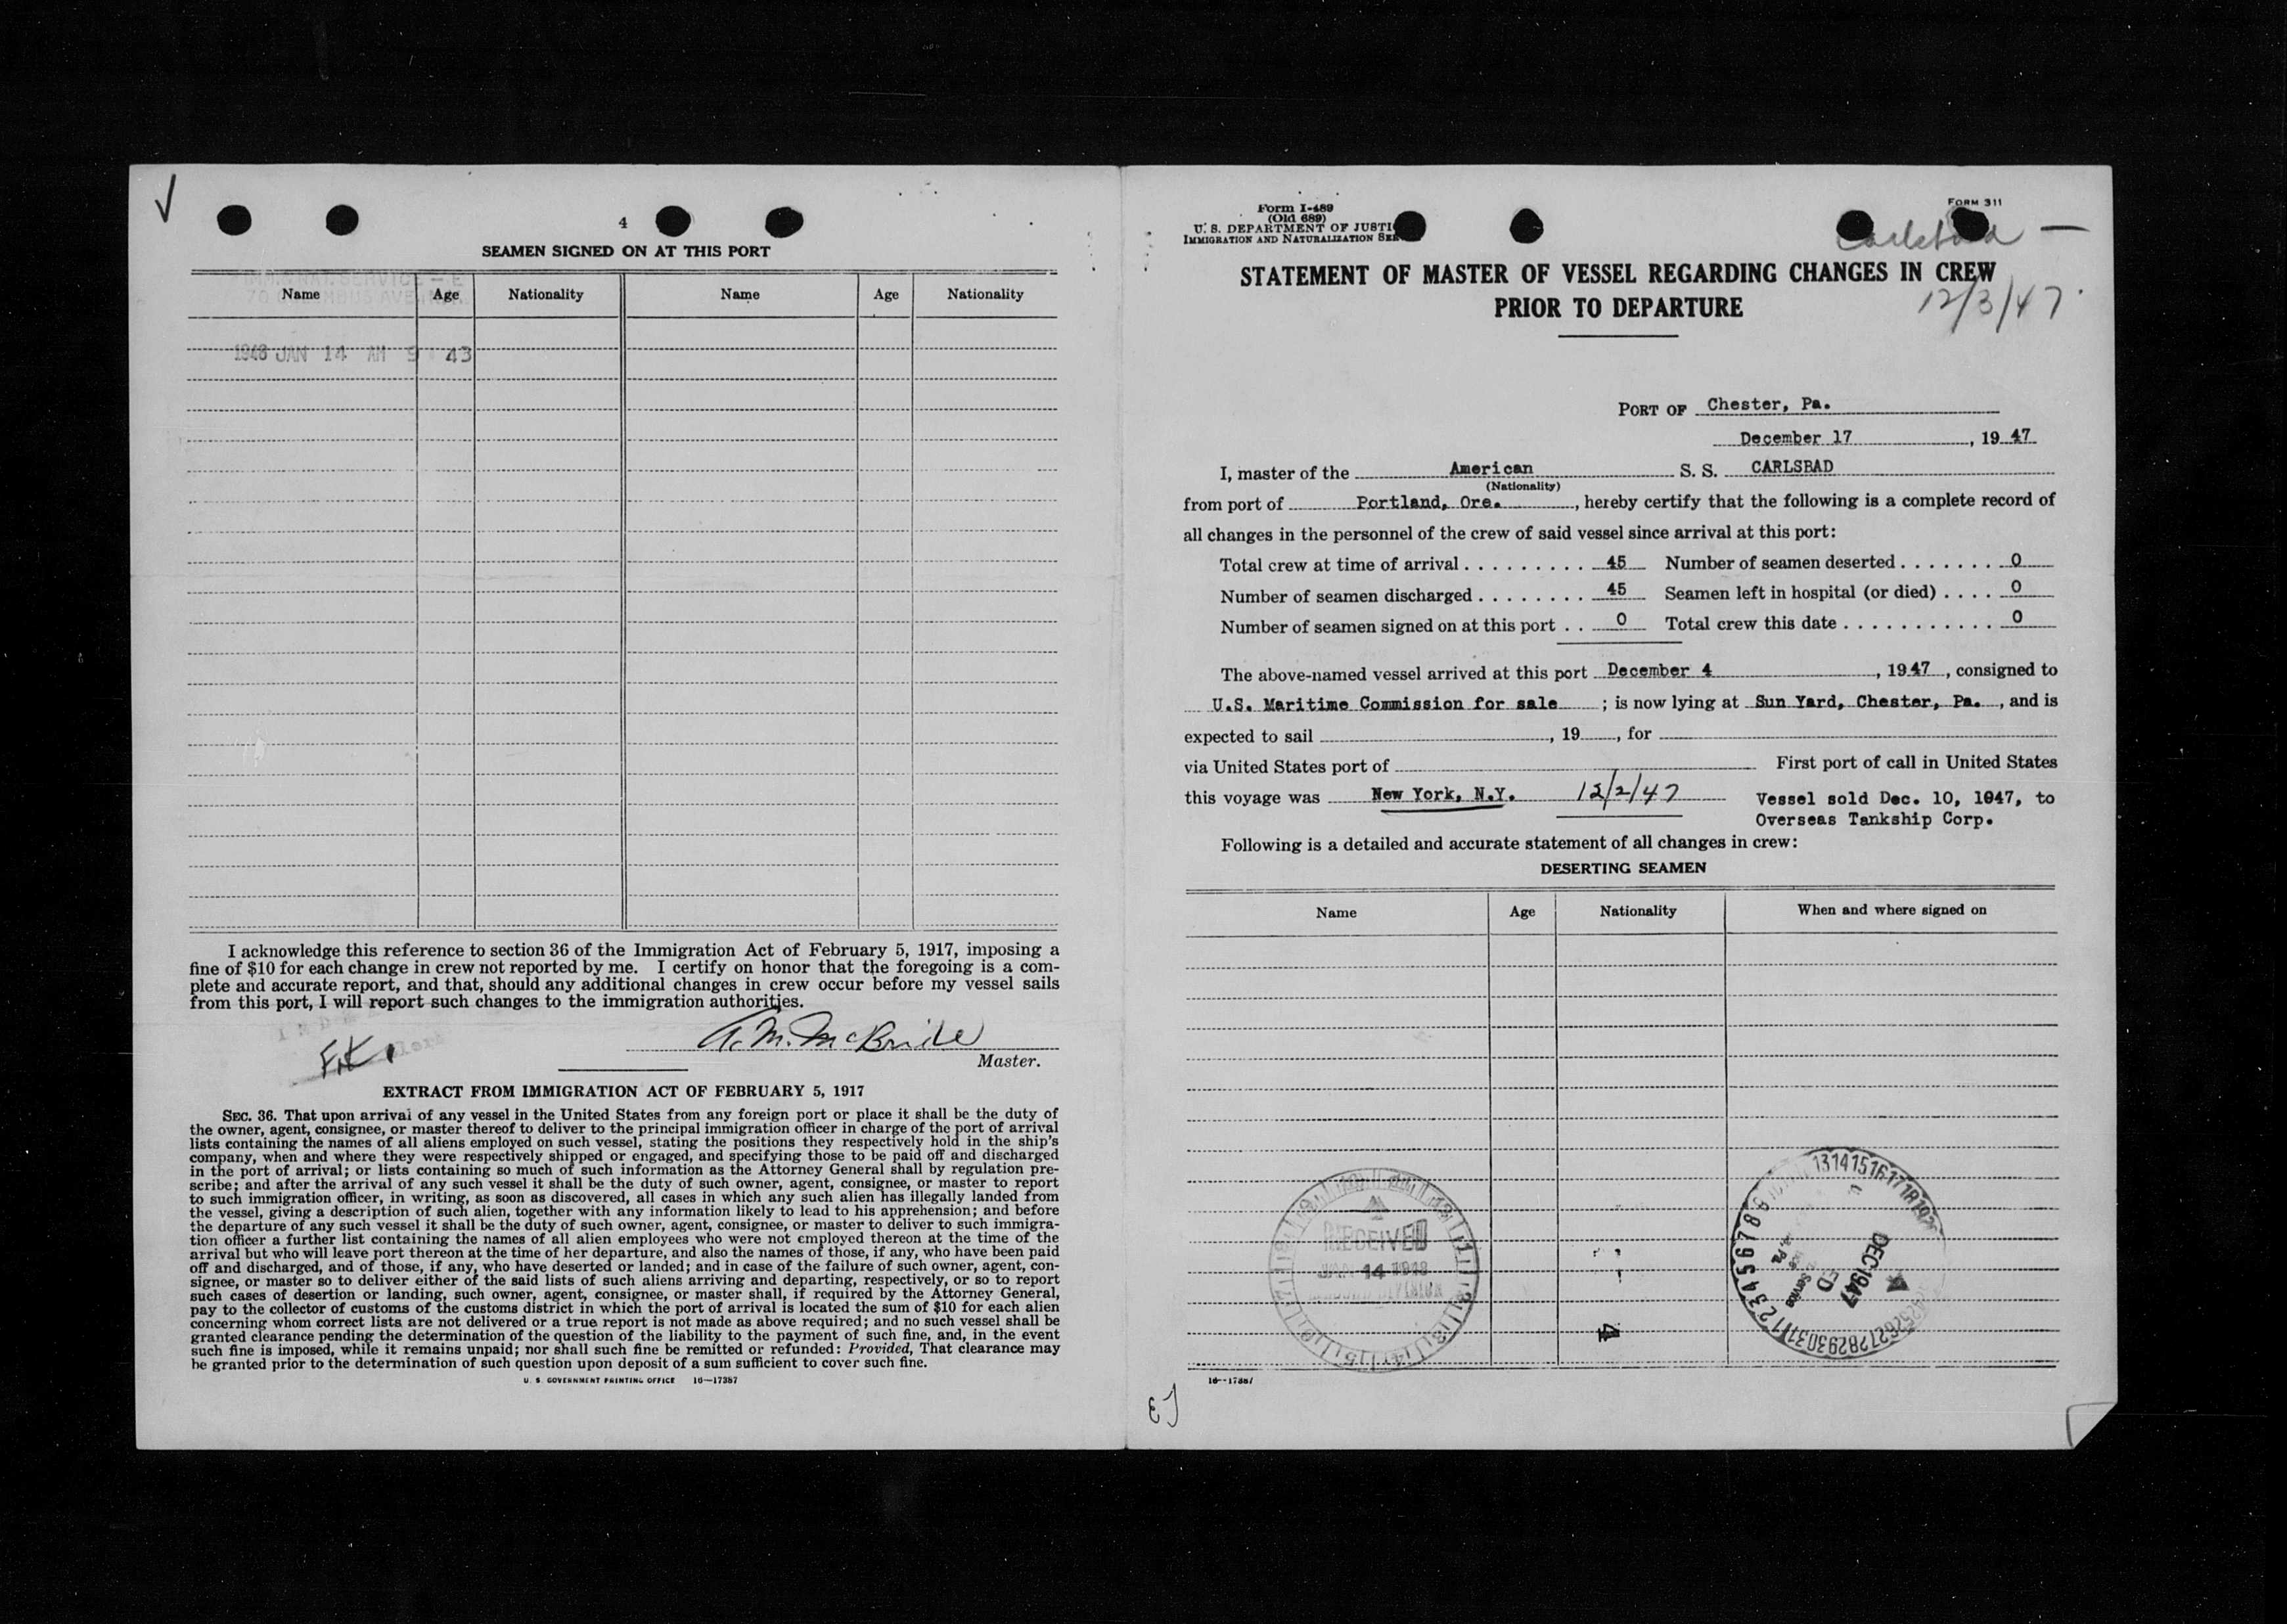 4
SEAMEN SIGNED ON AT THIS PORT
Name Age Nationality Name Age Nationality
1948 JAN 14 AM 9 43
I acknowledge this reference to section 36 of the Immigration Act of February 5, 1917, imposing a
fine of $10 for each change in crew not reported by me. I certify on honor that the foregoing is a com-
plete and accurate report, and that, should any additional changes in crew occur before my vessel sails
from this port, I will report such changes to the immigration authorities.
A. M. McBride
Master.
EXTRACT FROM IMMIGRATION ACT OF FEBRUARY 5, 1917
SEC. 36. That upon arrival of any vessel in the United States from any foreign port or place it shall be the duty of
the owner, agent, consignee, or master thereof to deliver to the principal immigration officer in charge of the port of arrival
lists containing the names of all aliens employed on such vessel, stating the positions they respectively hold in the ship's
company, when and where they were respectively shipped or engaged, and specifying those to be paid off and discharged
in the port of arrival; or lists containing so much of such information as the Attorney General shall by regulation pre-
scribe; and after the arrival of any such vessel it shall be the duty of such owner, agent, consignee, or master to report
to such immigration officer, in writing, as soon as discovered, all cases in which any such alien has illegally landed from
the vessel, giving a description of such alien, together with any information likely to lead to his apprehension; and before
the departure of any such vessel it shall be the duty of such owner, agent, consignee, or master to deliver to such immigra-
tion officer a further list containing the names of all alien employees who were not employed thereon at the time of the
arrival but who will leave port thereon at the time of her departure, and also the names of those, if any, who have been paid
off and discharged, and of those, if any, who have deserted or landed; and in case of the failure of such owner, agent, con-
signee, or master so to deliver either of the said lists of such aliens arriving and departing, respectively, or so to report
such cases of desertion or landing, such owner, agent, consignee, or master shall, if required by the Attorney General,
pay to the collector of customs of the customs district in which the port of arrival is located the sum of $10 for each alien
concerning whom correct lists are not delivered or a true report is not made as above required; and no such vessel shall be
granted clearance pending the determination of the question of the liability to the payment of such fine, and, in the event
such fine is imposed, while it remains unpaid; nor shall such fine be remitted or refunded: Provided, That clearance may
be granted prior to the determination of such question upon deposit of a sum sufficient to cover such fine.
U. S. GOVERNMENT PRINTING OFFICE 16—17387
Form I-489
(Old 689)
U. S. DEPARTMENT OF JUSTI
IMMIGRATION AND NATURALIZATION SER
FORM 311
Carlsbad —
STATEMENT OF MASTER OF VESSEL REGARDING CHANGES IN CREW
PRIOR TO DEPARTURE
12/3/47
PORT OF Chester, Pa.
December 17, 1947
I, master of the American S. S. CARLSBAD
(Nationality)
from port of Portland, Ore., hereby certify that the following is a complete record of
all changes in the personnel of the crew of said vessel since arrival at this port:
Total crew at time of arrival . . . . . . . . . 45 Number of seamen deserted . . . . . . . 0
Number of seamen discharged . . . . . . . . 45 Seamen left in hospital (or died) . . . . 0
Number of seamen signed on at this port . . 0 Total crew this date . . . . . . . . . . . 0
The above-named vessel arrived at this port December 4, 1947, consigned to
U.S. Maritime Commission for sale; is now lying at Sun Yard, Chester, Pa., and is
expected to sail , 19 , for
via United States port of First port of call in United States
this voyage was New York, N.Y. 12/2/47 Vessel sold Dec. 10, 1947, to
Overseas Tankship Corp.
Following is a detailed and accurate statement of all changes in crew:
DESERTING SEAMEN
Name Age Nationality When and where signed on
RECEIVED
JAN 14 1948
DEC 1947
4